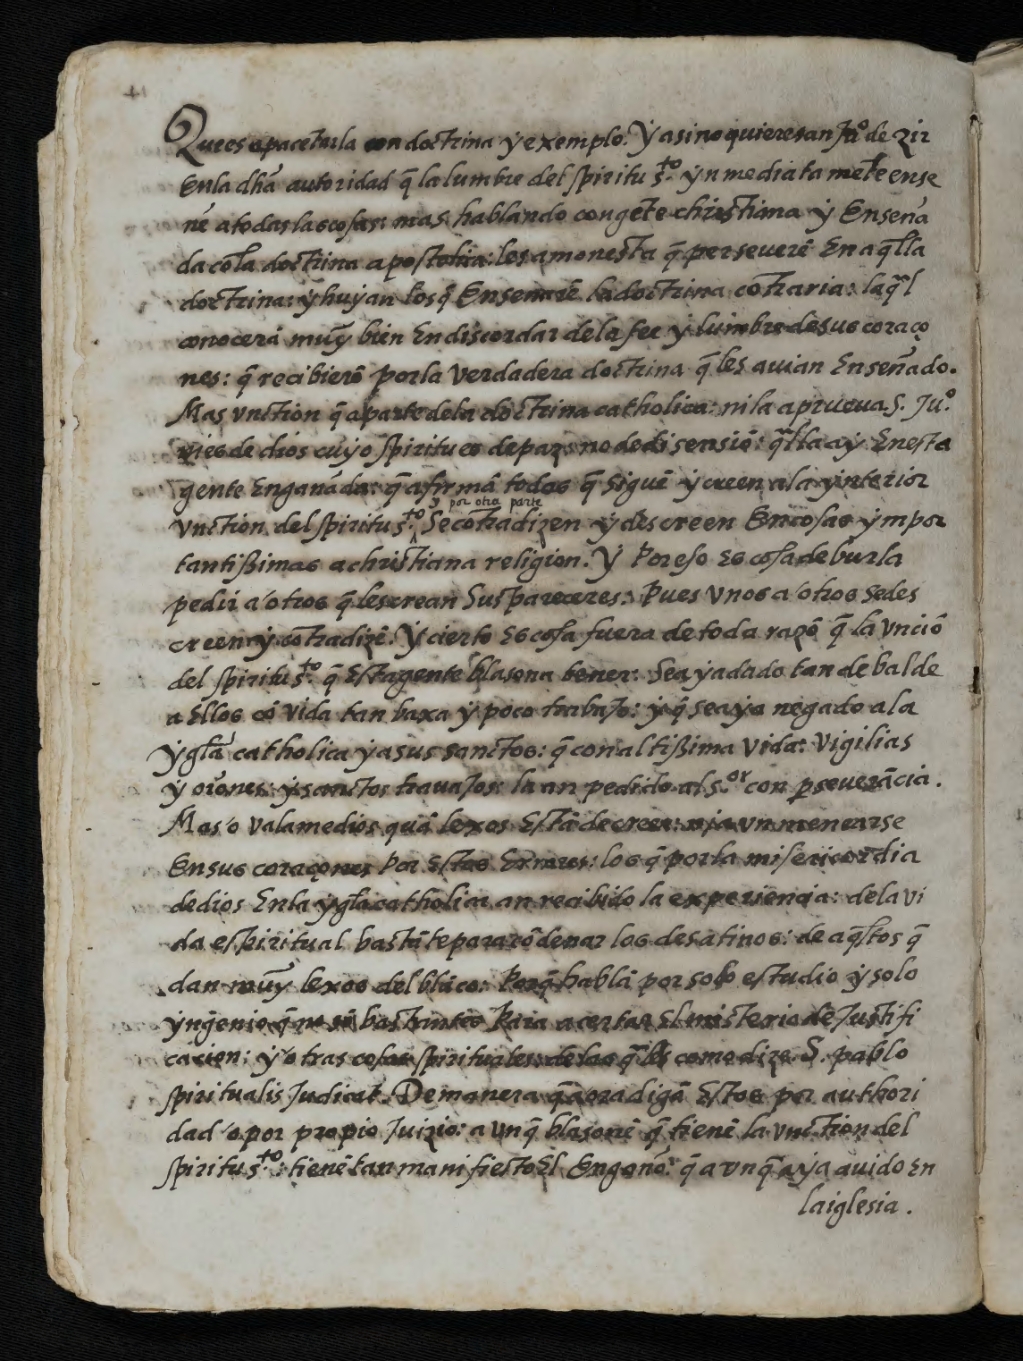 Que es apacentarla con doctrina y exemplo. Y asi no quiere san Ju.º dezir
En la dha autoridad q̃ la lumbre del spiritu s.to ynmediatamẽte ense
ñe a todas las cosas: mas hablando con gẽte christiana y Enseña
da cõla doctrina apostolica: les amonesta q̃ perseverẽ En aq̃lla
doctrina: y huyan los q̃ Enseñarẽ la doctrina cõtraria: la q̃l
conocerã muy bien En discordar de la fee y lumbre de sus coraço
nes: q̃ recibierõ por la verdadera doctrina q̃ les avian Enseñado.
Mas vnction q̃ aparte de la doctrina catholica: ni la aprueua S. Ju.º
ni es de dios cuyo spiritu es de paz no de disensiõ: q̃l la ay En esta
gente Engañada: q̃ afirmã todos q̃ siguẽ y creen a la ynterior
vnction del spiritu s.to y por otra parte Se cõtradizen y descreen En cosas ympor
tantißimas a christiana religion. Y Por eso Es cosa de burla
pedir a otros q̃ les crean Sus pareceres: Pues vnos a otros Se des
creen y cõtradizẽ. Y cierto Es cosa fuera de toda razõ q̃ la vnciõ
del spiritu s.to q̃ Esta gente blasona tener: Sea ya dado tan de balde
a Ellos cõ vida tan baxa y poco trabajo: y q̃ sea ya negado a la
ygl̃a catholica y a sus sanctos: q̃ con altißima vida: vigilias
y oiones: y sanctos trauajos: la an pedido al S.or con p̱seuerãcia.
Mas o valame dios quã lexos Estã de creer: ni aun menearse
En sus coraçones Por Estos Errores: los q̃ por la misericordia
de dios En la ygl̃a catholica an recibido la experiencia: de la vi
da espiritual bastãte para cõdenar los desatinos: de aq̃stos q̃
dan muy lexos del blãco: Porq̃ hablã por solo estudio y solo
yngenio q̃ no sõ bastantes Para acertar El misterio de Justifi
cacion: y otras cosas spirituales: de las q̃les como dize S. pablo
spiritualis Judicat. De manera q̃ aora digã Estos por authori
dad o por propio Juizio: a vnq̃ blasonẽ q̃ tienẽ la vnction del
spiritu s.to: tienẽ tan manifiesto El Engaño: q̃ a vnq̃ aya auido En
la iglesia.